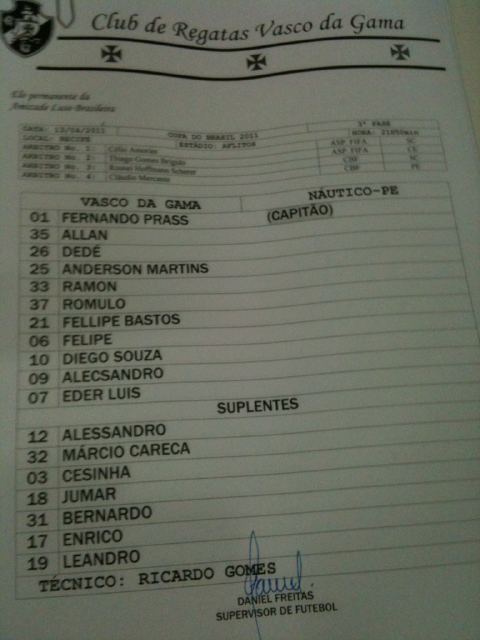 Club de Regatas Vasco da Gama
Elo permanente da
Amizade Luso-Brasileira
DATA: 13/04/2011 COPA DO BRASIL 2011 3ª FASE
LOCAL: RECIFE ESTÁDIO: AFLITOS HORA: 21H50min
ARBITRO No. 1: Célio Amorim ASP FIFA SC
ARBITRO No. 2: Thiago Gomes Brigido ASP FIFA CE
ARBITRO No. 3: Rosnei Hoffmann Scherer CBF SC
ARBITRO No. 4: Cláudio Mercante CBF PE
VASCO DA GAMA NÁUTICO-PE
01 FERNANDO PRASS (CAPITÃO)
35 ALLAN
26 DEDÉ
25 ANDERSON MARTINS
33 RAMON
37 ROMULO
21 FELLIPE BASTOS
06 FELIPE
10 DIEGO SOUZA
09 ALECSANDRO
07 EDER LUIS
SUPLENTES
12 ALESSANDRO
32 MÁRCIO CARECA
03 CESINHA
18 JUMAR
31 BERNARDO
17 ENRICO
19 LEANDRO
TÉCNICO: RICARDO GOMES
DANIEL FREITAS
SUPERVISOR DE FUTEBOL